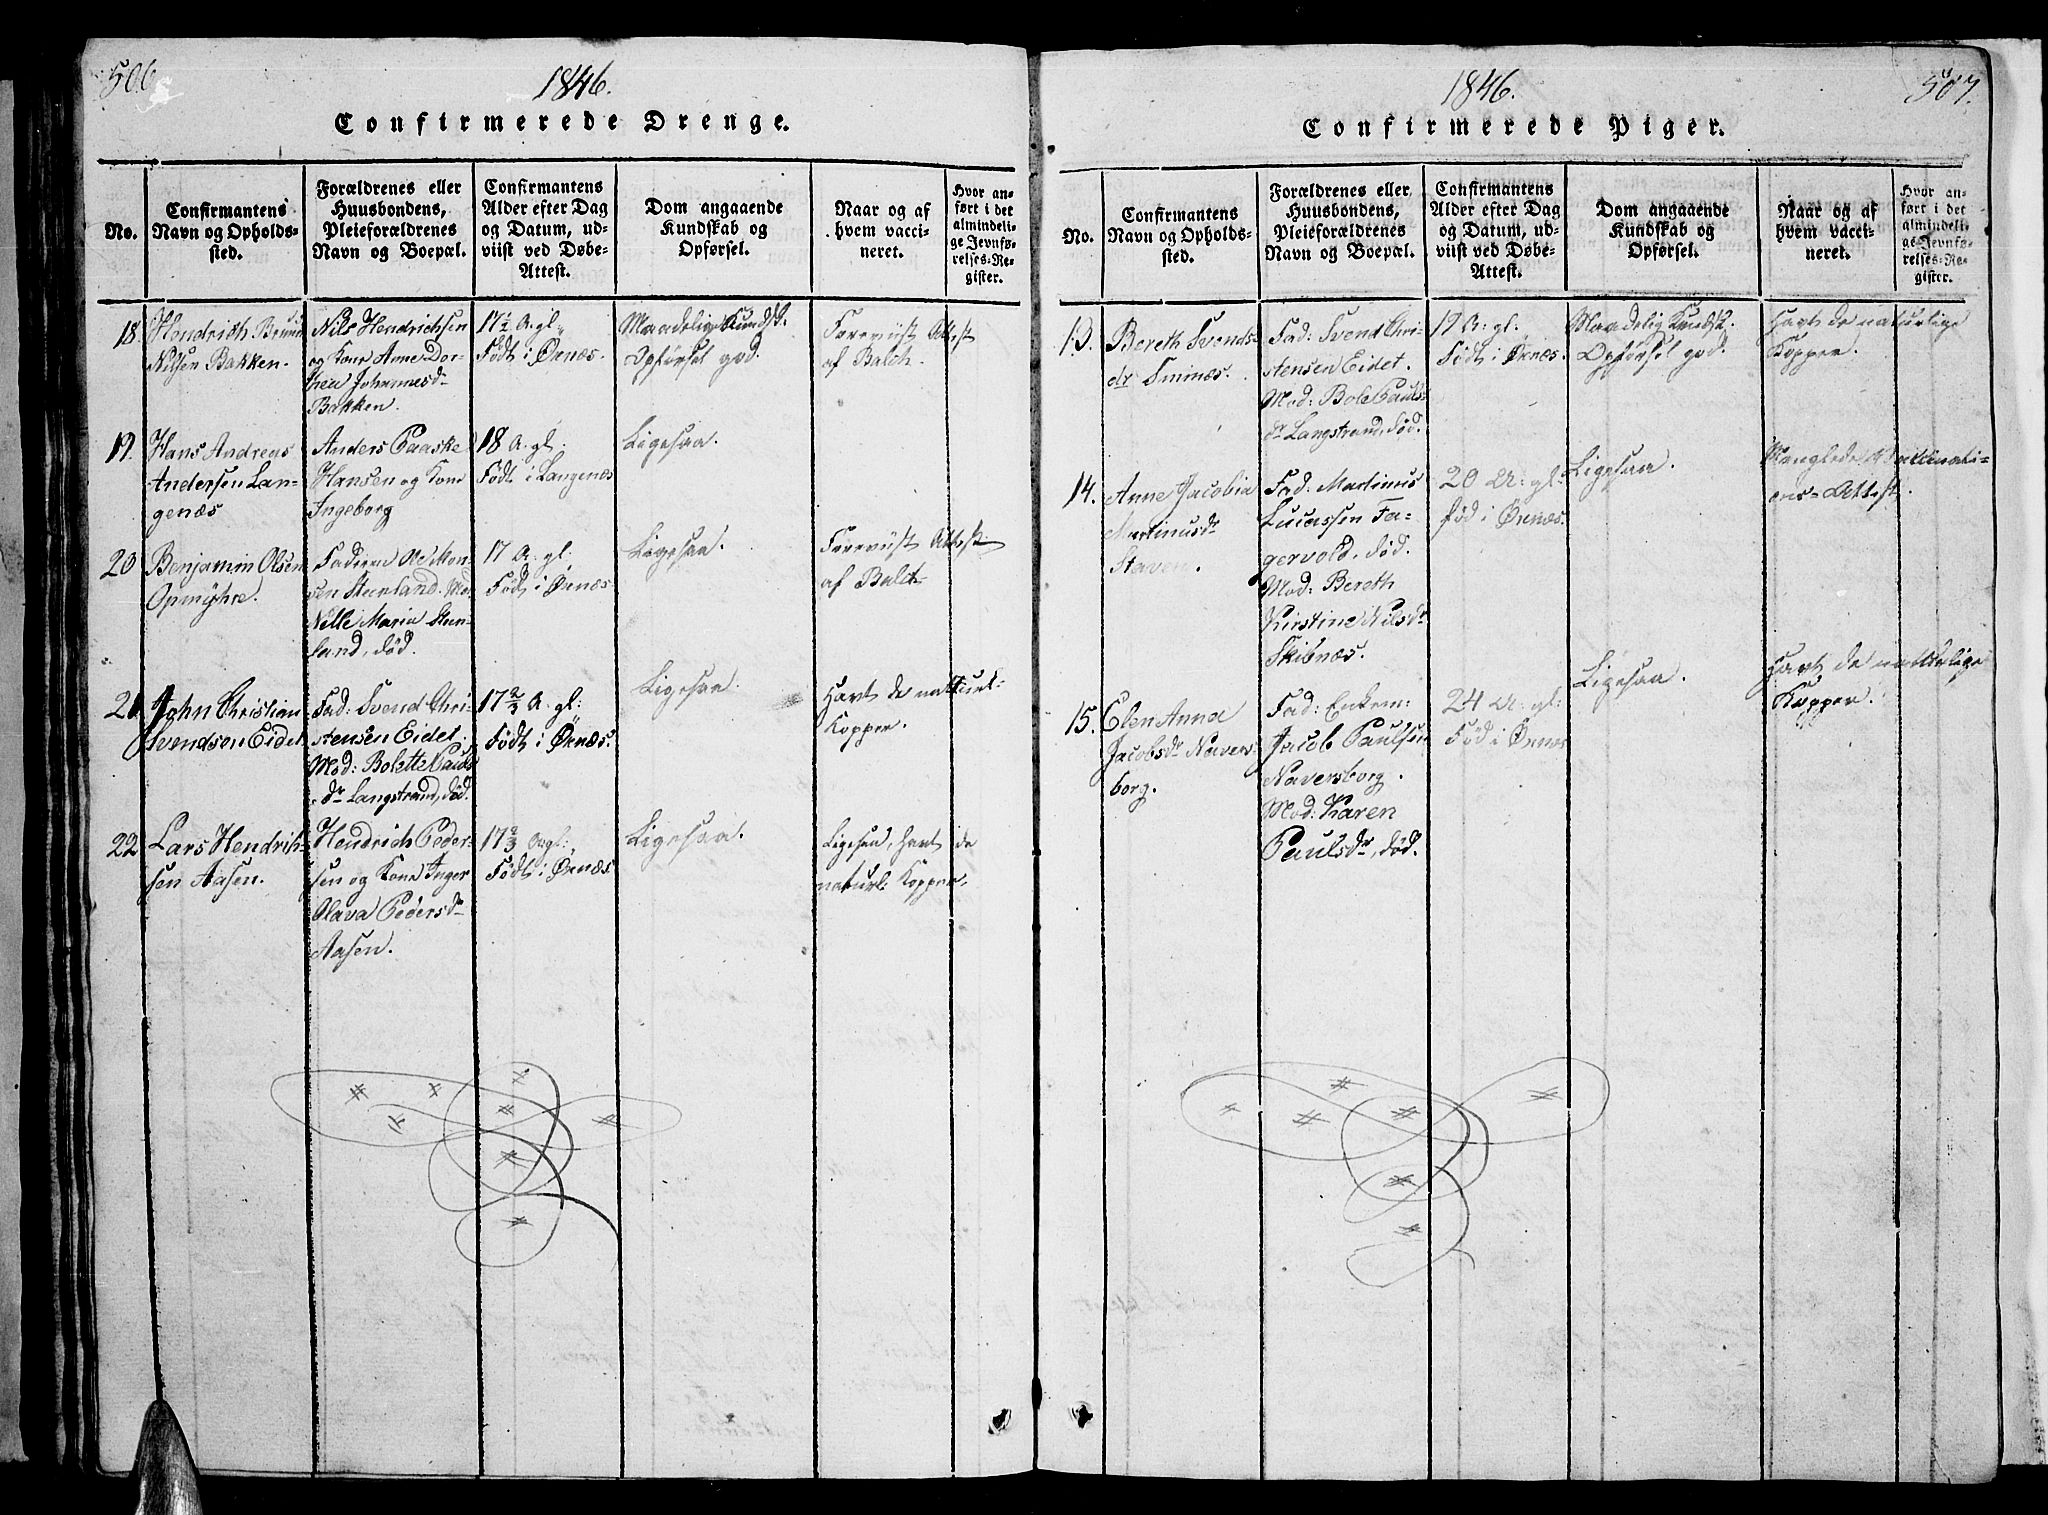 506
1846.
Confirmerede Drenge.
No.
Confirmantens
Navn og Opholds-
sted.
Forældrenes eller
Huusbondens,
Pleieforældrenes
Navn og Boepæl.
Confirmantens
Alder efter Dag
og Datum, ud-
viist ved Døbe-
Attest.
Dom angaaende
Kundskab og
Opførsel.
Naar og af
hvem vacci-
neret.
Hvor an-
ført i det
almindeli-
ge Jevnfø-
relses-Re-
gister.
18.
Hendrich
Nilsen Bakken.
Nils Hendrichsen
og Kone Anne Dor-
thea Johannesd.
Bakken.
17½ A. gl.
Født i Ørnæs.
Maadelig Kundsk.
Opførsel god.
Foreviist Attest
af Balch.
19.
Hans Andreas
Andersen Lan-
genæs
Anders Paaske
Hansen og Kone
Ingeborg
18 A. gl:
Født i Langenæs
Ligesaa.
20
Benjamin Olsen
Opmyhre.
Faderen Ole Mon-
sen Steenland. Mod
Nille Maria Steen-
land, død.
17 A. gl:
Født i Ørnæs
Ligesaa.
Foreviist Attest
af Balch
21
John Christian
Svendsen Eidet
Fad: Svend Chri-
stensen Eidet.
Mod: Bolette Pauls
dr Langstrand, død.
17⅔ A. gl:
Født i Ørnæs.
Ligesaa.
Havt de naturl.
Kopper.
22
Lars Hendrik-
sen Aasen.
Hendrich Peder-
sen og Kone Inger
Olava Pedersdr
Aasen.
17⅔ A gl:
Født i Ørnæs
Ligesaa.
Ligesaa, havt de
naturl: Kopper.
507.
1846.
Confirmerede Piger.
No.
Confirmantens
Navn og Opholds-
sted.
Forældrenes eller
Huusbondens,
Pleieforældrenes
Navn og Boepæl.
Confirmantens
Alder efter Dag
og Datum, ud-
viist ved Døbe-
Attest.
Dom angaaende
Kundskab og
Opførsel.
Naar og af
hvem vacci-
neret.
Hvor an-
ført i det
almindeli-
ge Jevnfø-
relses-Re-
gister.
13.
Bereth Svends-
dr Sminæs.
Fad: Svend Chri-
stensen Eidet.
Mod: Bole Pauls-
dr Langstrand, død.
19 A. gl.
Født i Ørnæs.
Maadelig Kundsk.
Opførsel god.
Havt de naturlige
Kopper.
14.
Anne Jacobia
Martinusdr
Staven.
Fad: Martinus
Lucassen Fa-
gervold, død.
Mod: Bereth
Kirstine Nilsdr
Skibnæs.
20 A: gl:
fød i Ørnæs.
Ligesaa.
Manglede Vaccinati-
ons-Attest.
15.
Elen Anna
Jacobsdr Navers-
borg.
Fad: Enkem:
Jacob Paulsen
Naversborg.
Mod: Karen
Paulsdr, død.
24 A: gl:
Fød i Ørnæs
Ligesaa.
Havt de naturlige
Kopper.